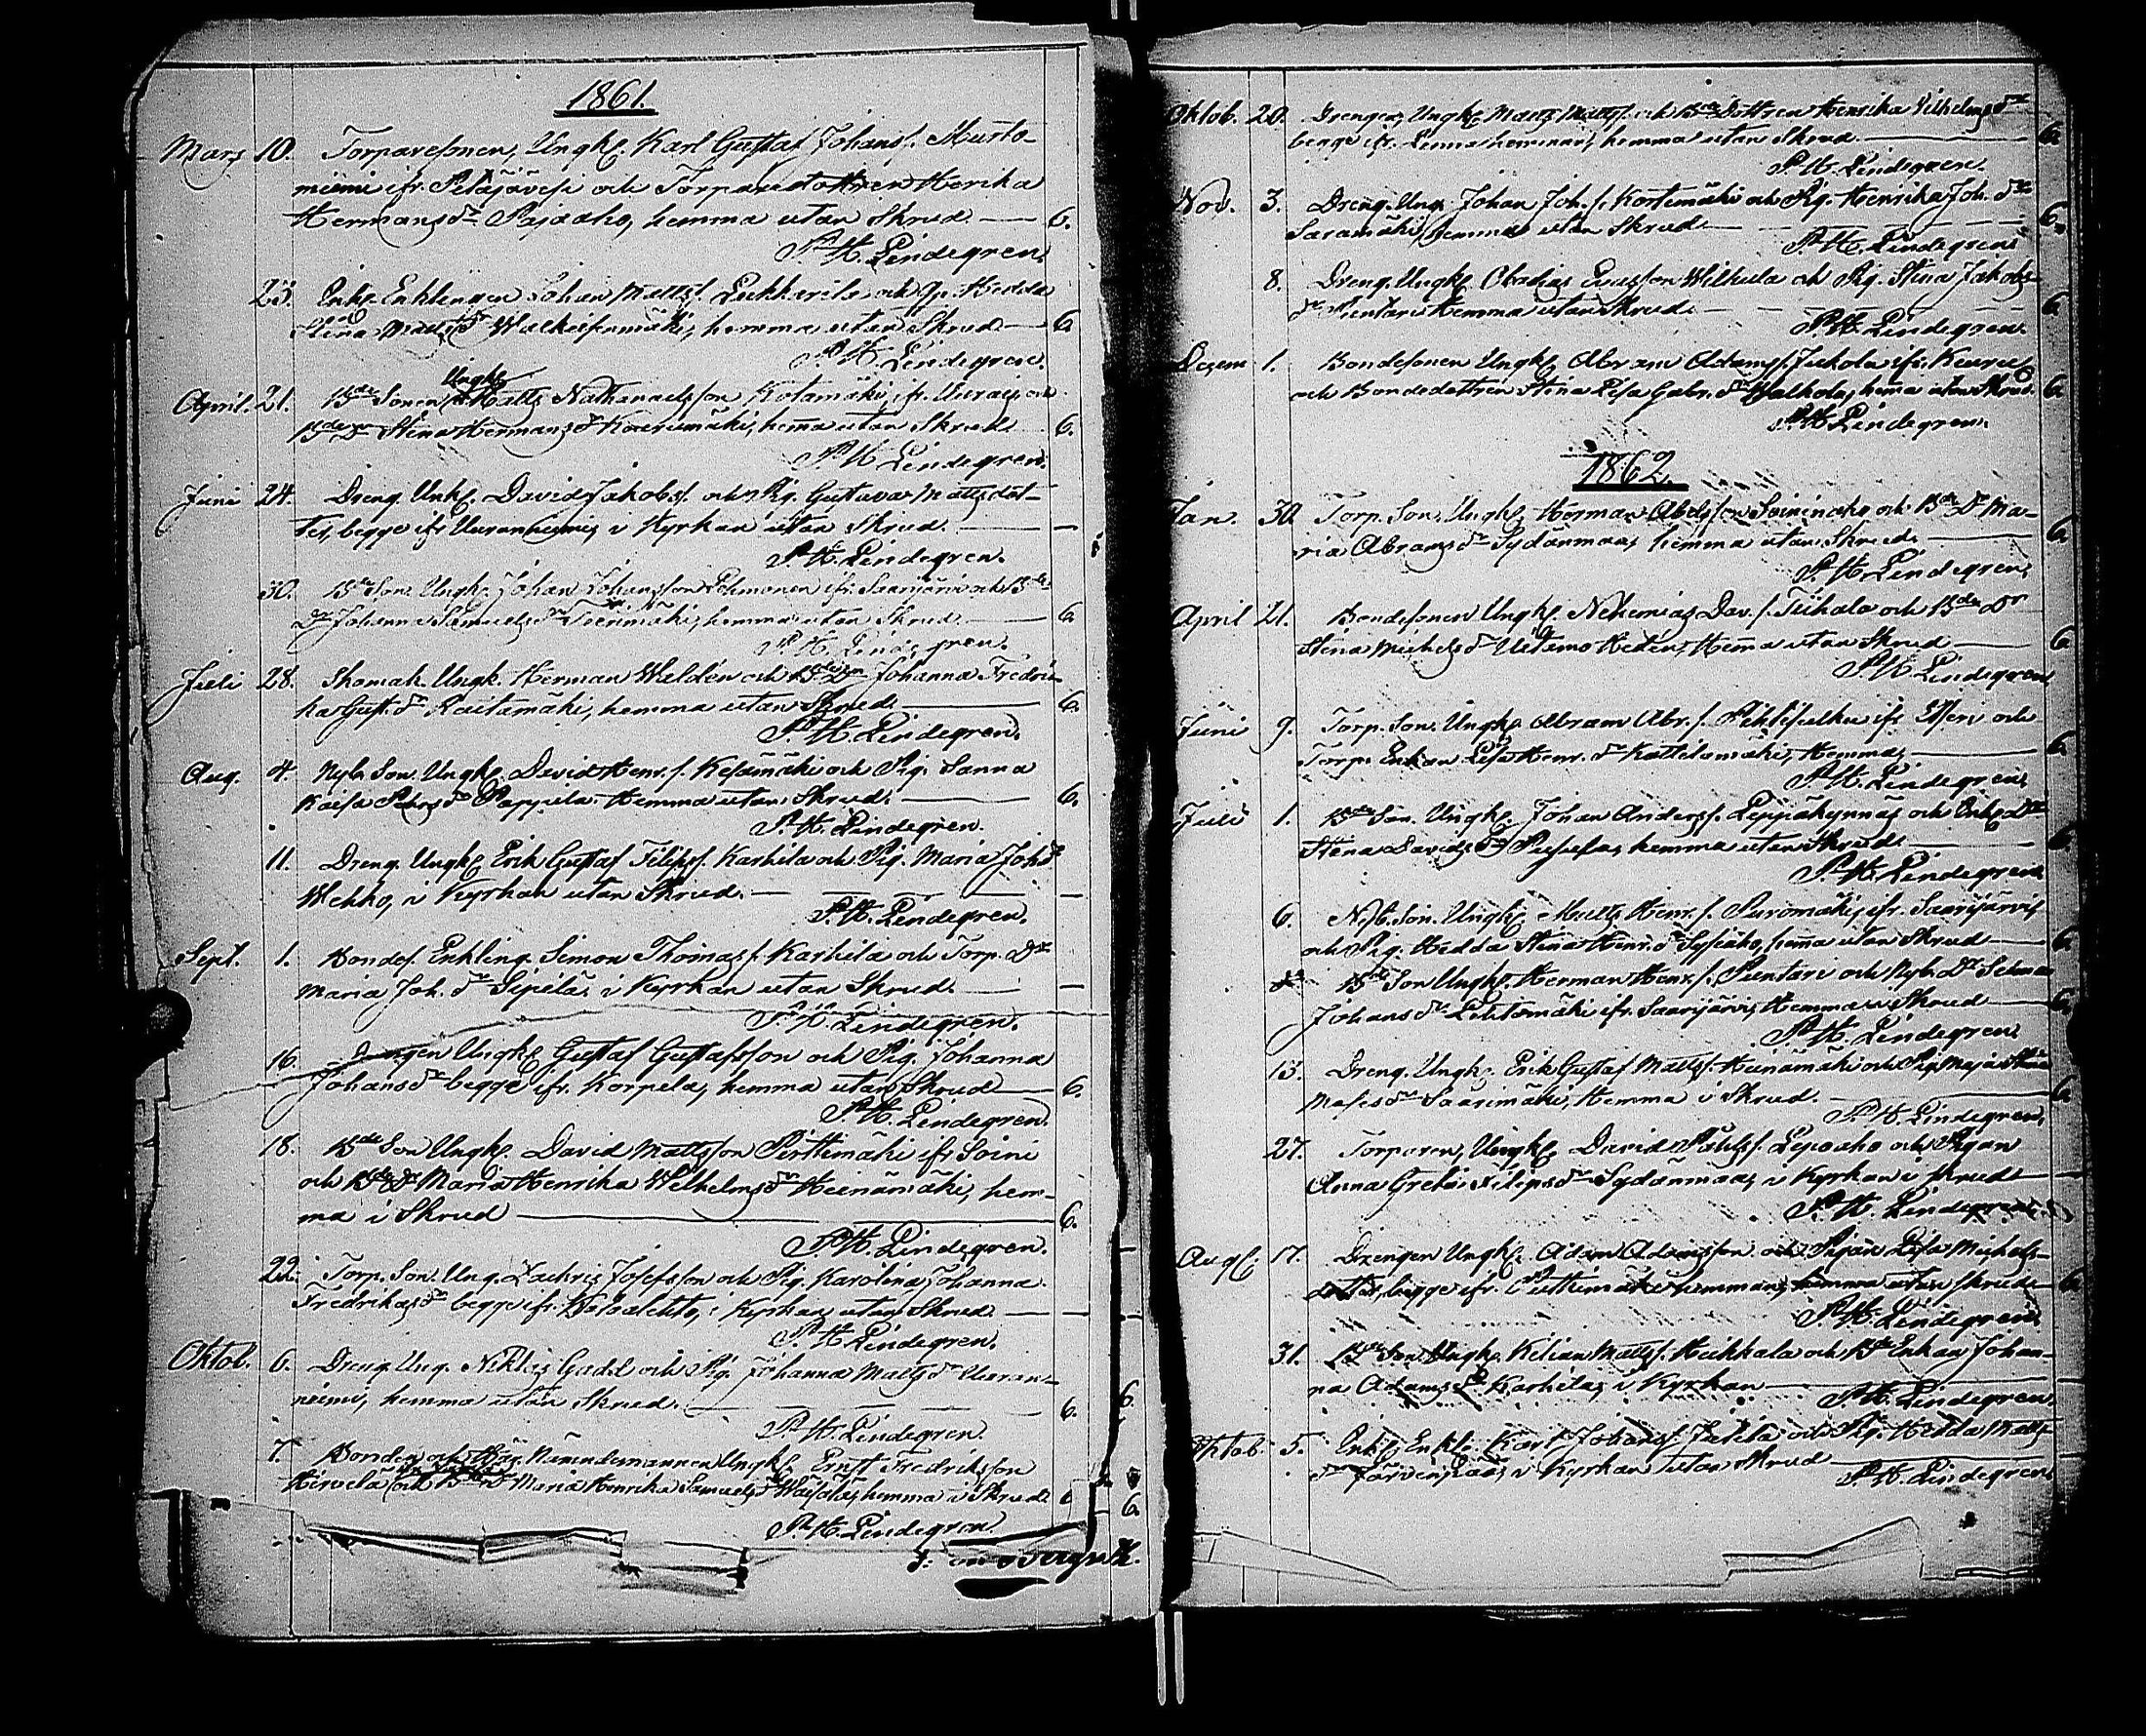 1861.
Mars 10. Torparesonen, Ungk. Karl Gustaf Johans f. Musto-
niemi ifr. Petäjävesi och Torparedottren Henrika
Hermans dr Pajaaho, hemma utan Skrud — 6.
P. H. Lindegren.
23. Enkl. Enklingen Johan Matts f. Lukkarila och Hedda
Stina Matts dr Walkeisenmäki, hemma utan Skrud — 6
P. H. Lindegren.
Ungk.
April. 21. Bde Sonen Matts Nathanaelsson Kotamäki, ifr. Uurais, och
Bde Dr Stina Hermans dr Kaurumäki, hemma utan Skrud 6.
P. H. Lindegren.
Juni 24. Dreng. Unk. David Jakobs f. och Pig. Gustava Mattsdot-
ter, begge ifr Uuraniemi, i Kyrkan utan Skrud. — —
P. H. Lindegren.
30. Bde Son. Ungk. Johan Johansson Lehmonen ifr. Saarijärvi och Bde
Dr Johanna Samuels dr Toenmäki, hemma utan Skrud — 6
P. H. Lindegren.
Juli 28. Skomak. Ungk. Herman Waldén och Bde Dr Johanna Fredri-
ka Gust. dr Raitamäki, hemma utan Skrud. — 6.
P. H. Lindegren.
Aug. 4. Nyb. Son. Ungk. David Henr. f. Kesämäki och Pig. Sanna
Kaisa Pehrs dr Pappila. Hemma utan Skrud. — 6.
P. H. Lindegren.
11. Dreng. Ungk. Erik Gustaf Filips f. Karhila och Pig. Maria Joh. dr
Wehko, i Kyrkan utan Skrud. — —
P. H. Lindegren.
Sept. 1. Bondes. Enkling. Simon Thomas f. Karhila och Torp. Dr
Maria Joh. dr Sipilä, i Kyrkan utan Skrud. — —
P. H. Lindegren.
16. Drengen Ungk. Gustaf Gustafsson och Pig. Johanna
Johans dr begge ifr. Korpela, hemma utan Skrud — 6.
P. H. Lindegren.
18. Bde Son Ungk. David Mattsson Pirttimäki ifr Soini
och Bde Dr Maria Henrika Wilhelms dr Heinämäki, hem-
ma i Skrud — 6.
P. H. Lindegren.
22. Torp. Son. Ung. Zachris Josefsson och Pig. Karolina Johanna
Fredrikas dr begge ifr. i Kyrkan utan Skrud. — —
P. H. Lindegren.
Oktob. 6. Dreng. Ung. Niklis Gadd och Pig. Johanna Matts dr Uuran-
niemi, hemma utan Skrud. — 6. 6
P. H. Lindegren
7. Bonden och Nämndemannen Ungk. Ernst Fredriksson
Hirvelä och Bde Dr Maria Henrika Samuels dr Waisala, hemma i Skrud 6 6.
P. H. Lindegren.
Oktob. 20. Drengen, Ungk. Matts Matts f. och Bde Dottren Henrika Vilhelms dr
begge ifr. hemman, hemma utan Skrud — 6.
P. H. Lindegren.
Nov. 3. Dreng. Ung. Johan Joh. f. Kortemäki och Pig. Henrika Joh. dr
Saramäki, hemma utan Skrud — 6.
P. H. Lindegren.
8. Dreng. Ungk. Obadias Enasson Wilkula och Pig. Stina Jakobs
dr Puntari. Hemma utan Skrud. — 6
P. H. Lindegren.
Decem 1. Bondesonen Ungk. Abram Adams f. Jukola ifr. Keuru
och Bondedottren Stina Lisa Gabr. dr Walkola, hema utan Skrud. 6
P. H. Lindegren.
1862.
Jan. 30 Torp. Son. Ungk. Herman Abelsson Soininaho och Bde Dr Ma-
ria Abrams dr Sydänmaa, hemma utan Skrud. — 6
P. H. Lindegren.
April 21. Bondesonen Ungk. Nehemias Dav. f. Tiihala och Bde Dr
Stina Michels dr Uitamo Heden, Hemma utan Skrud — 6
P. H. Lindegren
Juni 9. Torp. Son. Ungk. Abram Abr. f. Pihlisulku ifr Etseri och
Torp. Enkan Lisa Henr. dr Kattilamäki, Hemma — 6
P. H. Lindegren.
Juli 1. Bde Son. Ungk. Johan Anders f. Leppäkynnäs och Enkl. Dr
Stina Davids dr hemma utan Skrud. — 6
P. H. Lindegren
6. Nyb. Son. Ungk. Matts Henr. f. Puromäki, ifr. Saarijärvi,
och Pig. Hedda Stina Henr. dr hema utan Skrud — 6.
Bde Son Ungk. Herman Henr. f. Puntari och Nyb. Dr Selma
Johans dr Lehtomäki ifr. Saarijärvi, Hemma u Skrud — 6.
P. H. Lindegren.
13. Dreng. Ungk. Erik Gustaf Matts f. Heinämäki och Pig. Maja Stina
Moses dr Saarimäki, Hemma i Skrud. — 6
P. H. Lindegren.
27. Torparen, Ungk. David Påhls f. Lepoaho och Pigan
Anna Greta Filips dr Sydänmaa, i Kyrkan i skrud —
P. H. Lindegren.
Aug. 17. Drengen Ungk. Adam Adamsson och Pigan Lisa Michels-
dotter, begge ifr. Puttimäki hemman, hemma utan skrud 6
P. H. Lindegren.
31. Bde Son. Ungk. Kilian Matts f. Heikkala och Bde Enkan Johan-
na Adams dr Karhila, i Kyrkan —
P. H. Lindegren.
Oktob. 5. Enkl. Enkl. Karl Johans f. och Pig. Hedda Matts
dr Järvenpää, i Kyrkan utan Skrud —
P. H. Lindegren